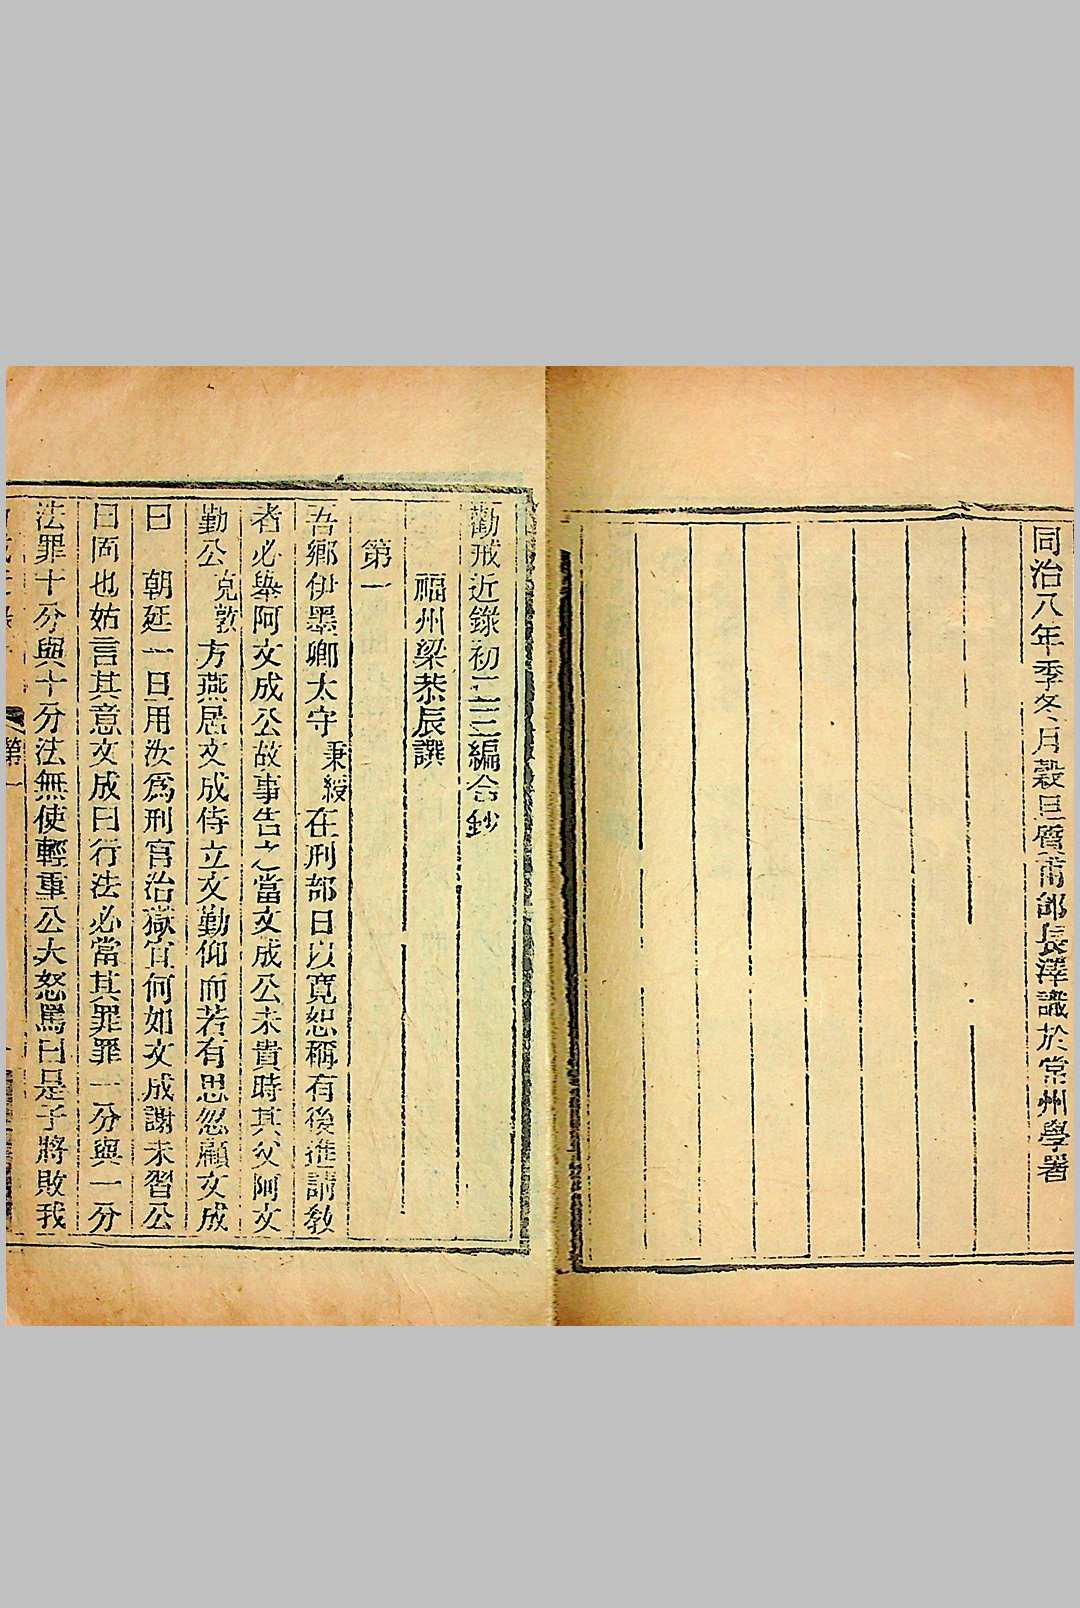 同治八年季冬月穀旦質甫郃長澤識於常州學署
勸戒近錄初二三編合鈔
福州梁恭辰譔
第一
吾鄉伊墨卿太守秉綬在刑部日以寬恕稱有後進請敎
者必舉阿文成公故事告之當文成公未貴時其父阿文
勤公克敦方燕居文成侍立文勤仰而若有思忽顧文成
曰 朝廷一旦用汝爲刑官治獄宜何如文成謝未習公
曰固也姑言其意文成曰行法必當其罪罪一分與一分
法罪十分與十分法無使輕重公大怒罵曰是子將敗我
第一